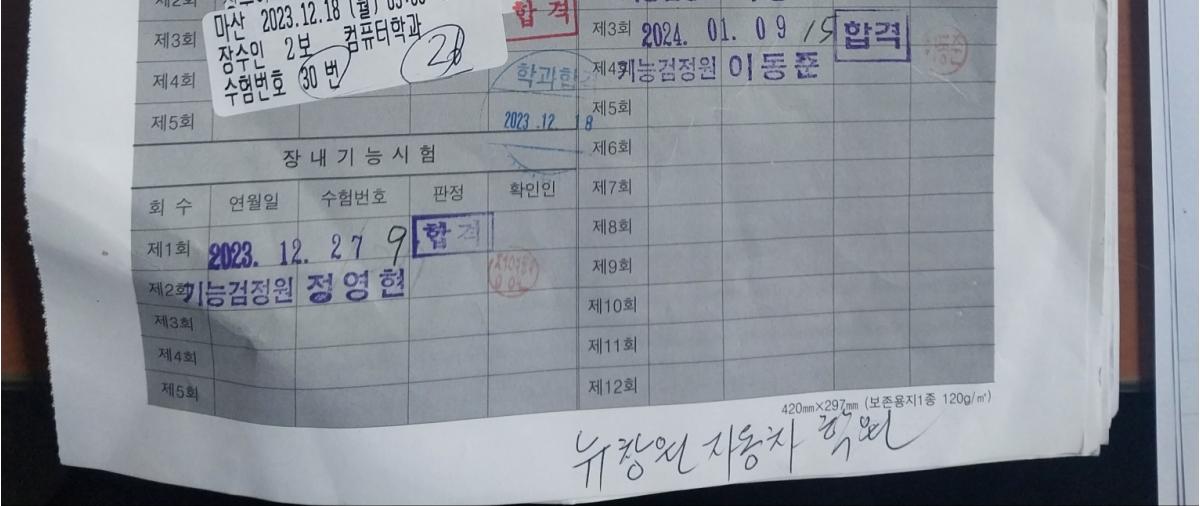 마산 2023.12.18 (월)
장수인 2보 컴퓨터학과
수험번호 30 번
합격
제3회
제4회
제5회
2023.12.18
장내기능시험
회수 연월일 수험번호 판정 확인인
제1회 2023. 12. 27 9 합격
제2회 기능검정원 정영현
제3회
제4회
제5회
제3회 2024. 01. 09 15 합격
제4회 기능검정원 이동준
제5회
제6회
제7회
제8회
제9회
제10회
제11회
제12회
420㎜×297㎜ (보존용지1종 120g/㎡)
뉴창원 자동차 학원